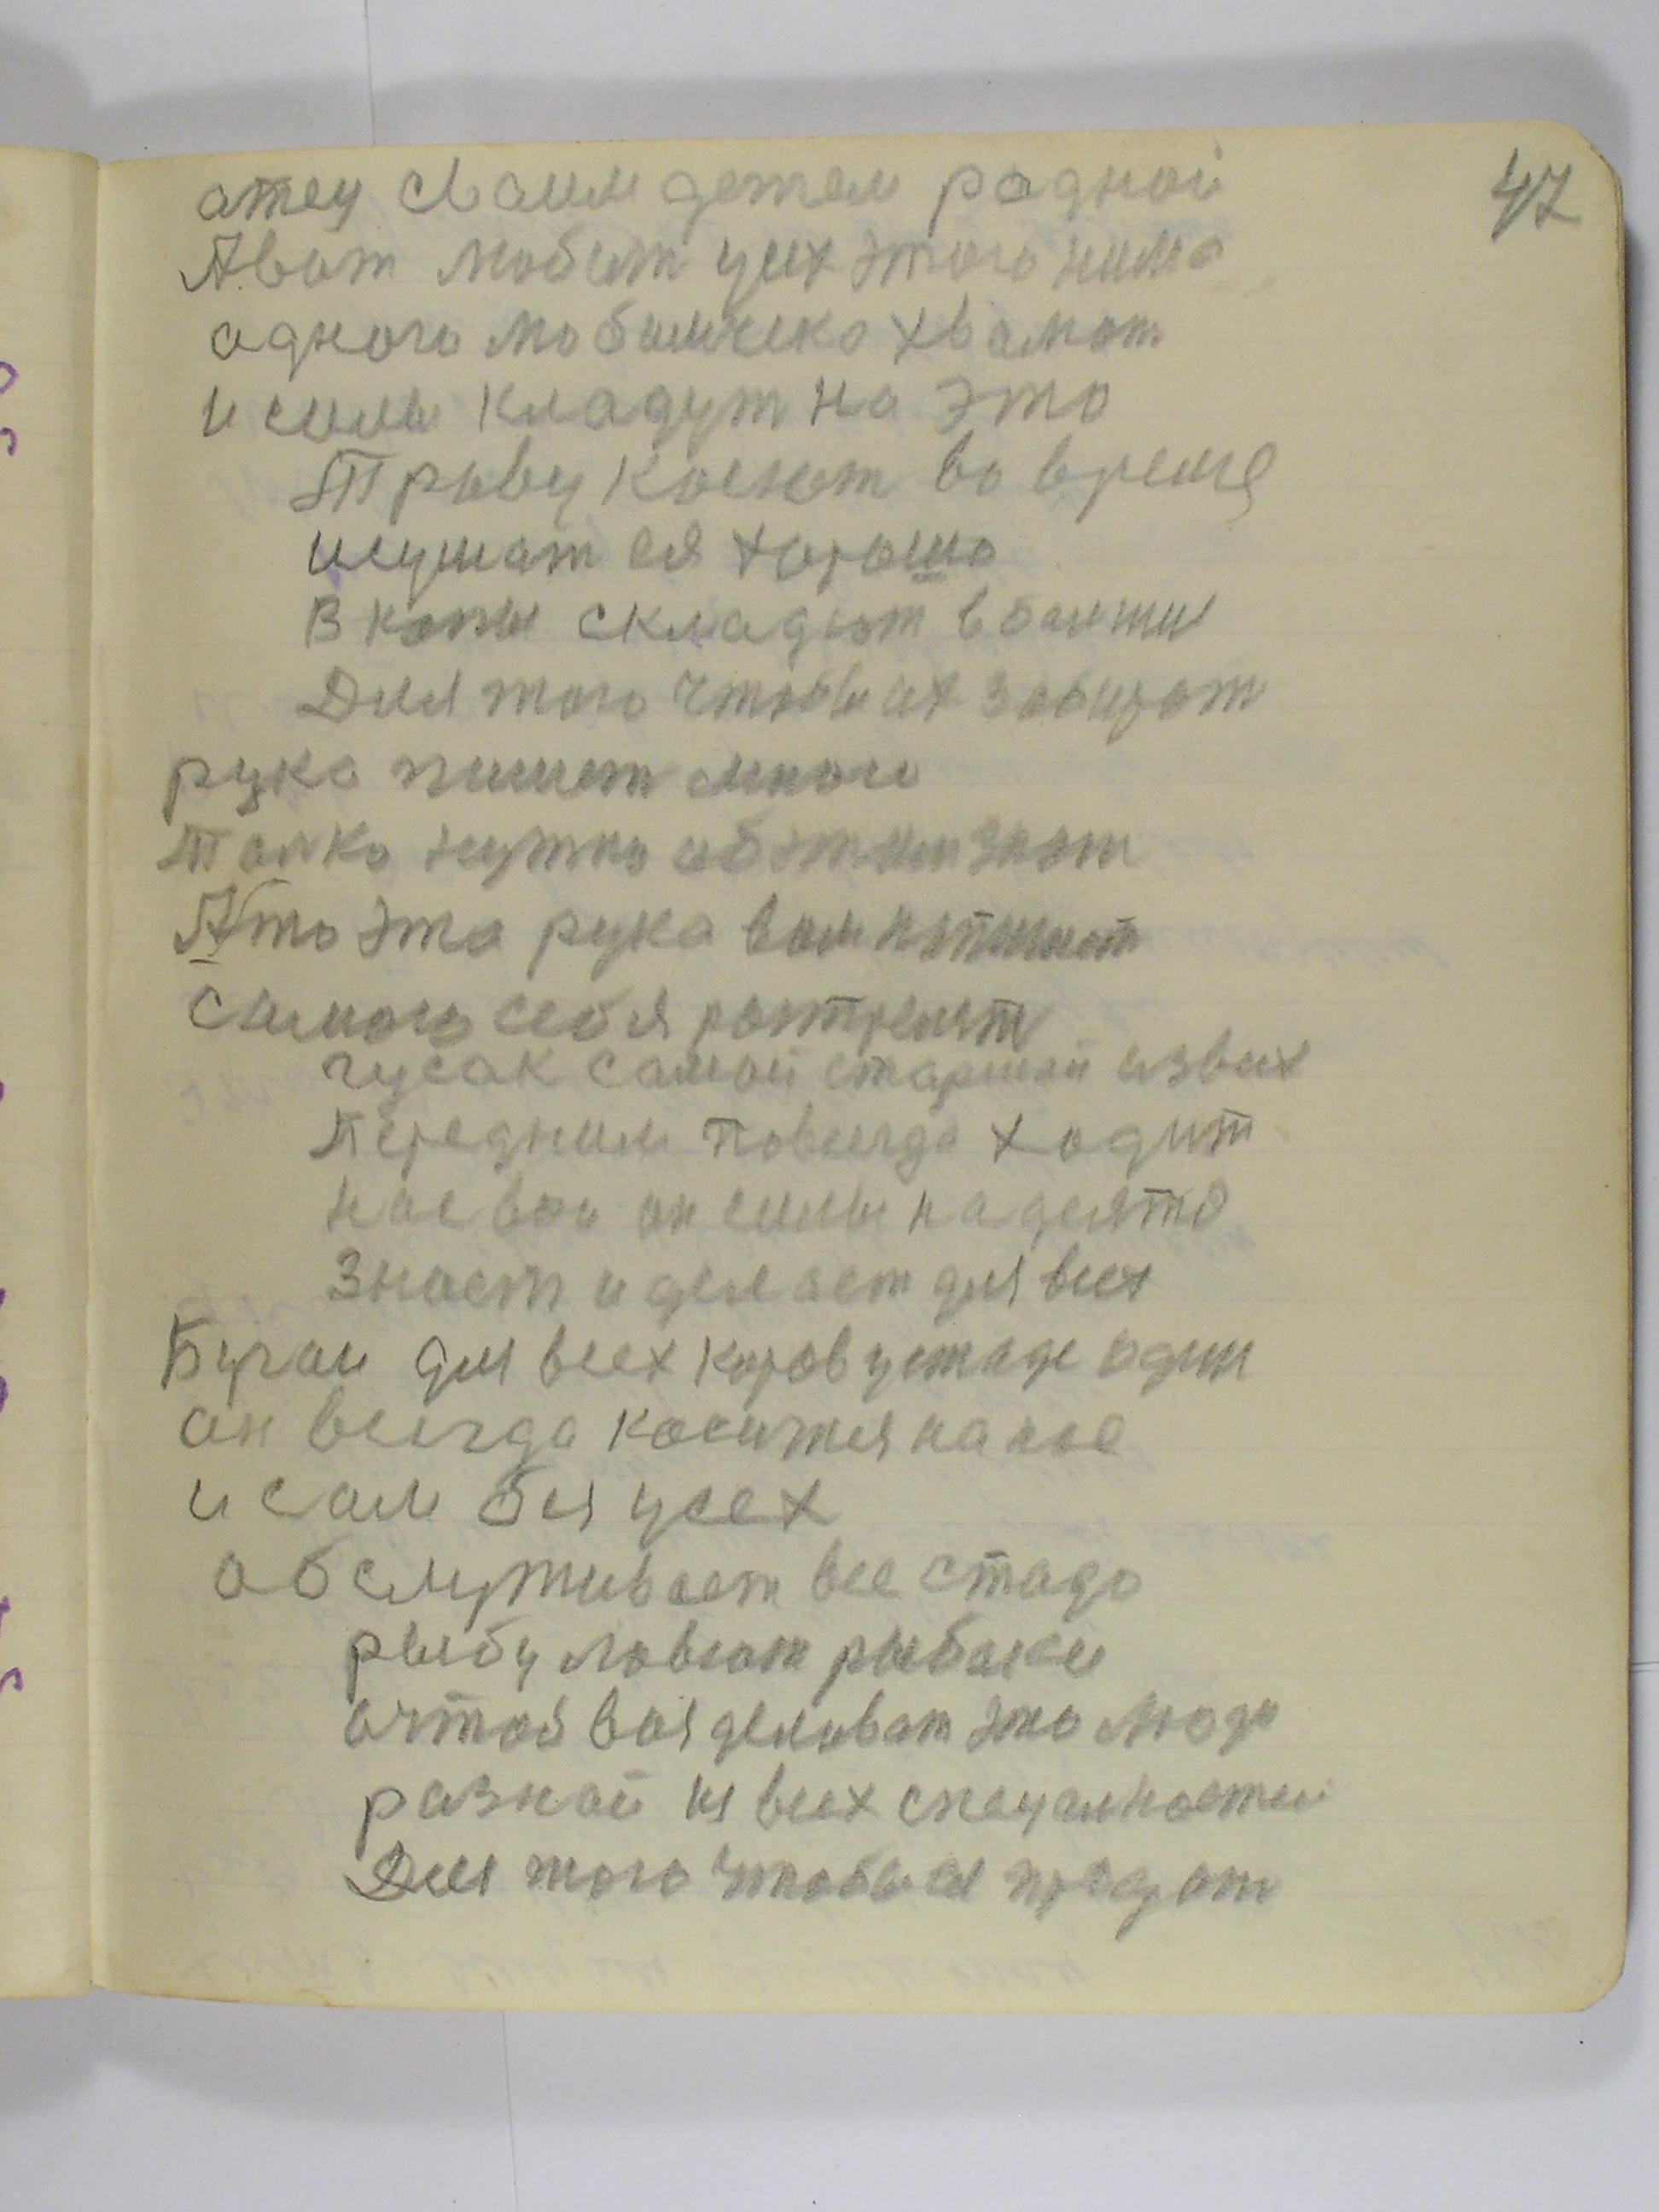 47
атец сваим детем радной
А вот любит усих этого нима
адного любимчека хвалют
и силы кладут на это
Траву косют во время
и сушат ея хорошо
В копы складют
Для того чтобы их забират
рука пишет
Толко нужно об этим знат
Что эта рука вам
самого себя
гусак самой старшой из всих
Передним повсегда ходит
на свои он силы надеятс
Знает и делает для всех
Бугаи для всех коров у стаде один
он всегда косится на ное
и сам бея усех
абслуживает все стадо
рыбу ловют рыбаки
а чтоб ея деловат это люди
разнаи из всех спецалностей
Для того чтобы ея продат